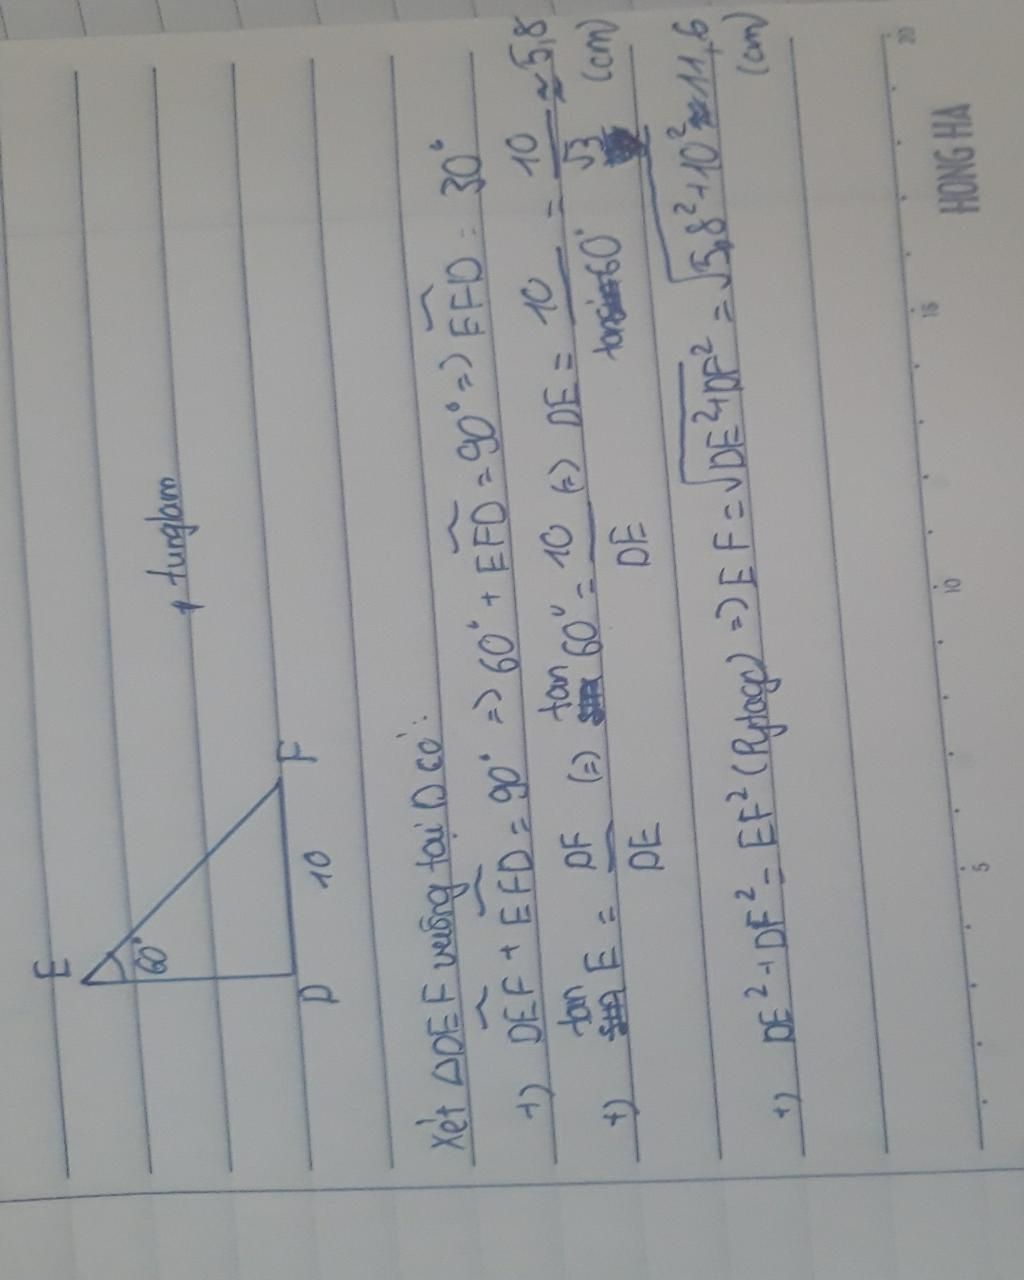 E
60°
D
10
F
* turglam
Xét ΔDEF vuông tại D có:
+) DEF + EFD = 90° => 60° + EFD = 90° => EFD = 30°
+) tan E = DF/DE (=) tan 60° = 10/DE (=) DE = 10/tan60° = 10/√3 ≈ 5,8 (cm)
+) DE² + DF² = EF² (Pytago) => EF = √DE²+DF² = √5,8²+10² ≈ 11,6 (cm)
5
10
15
20
HONG HA